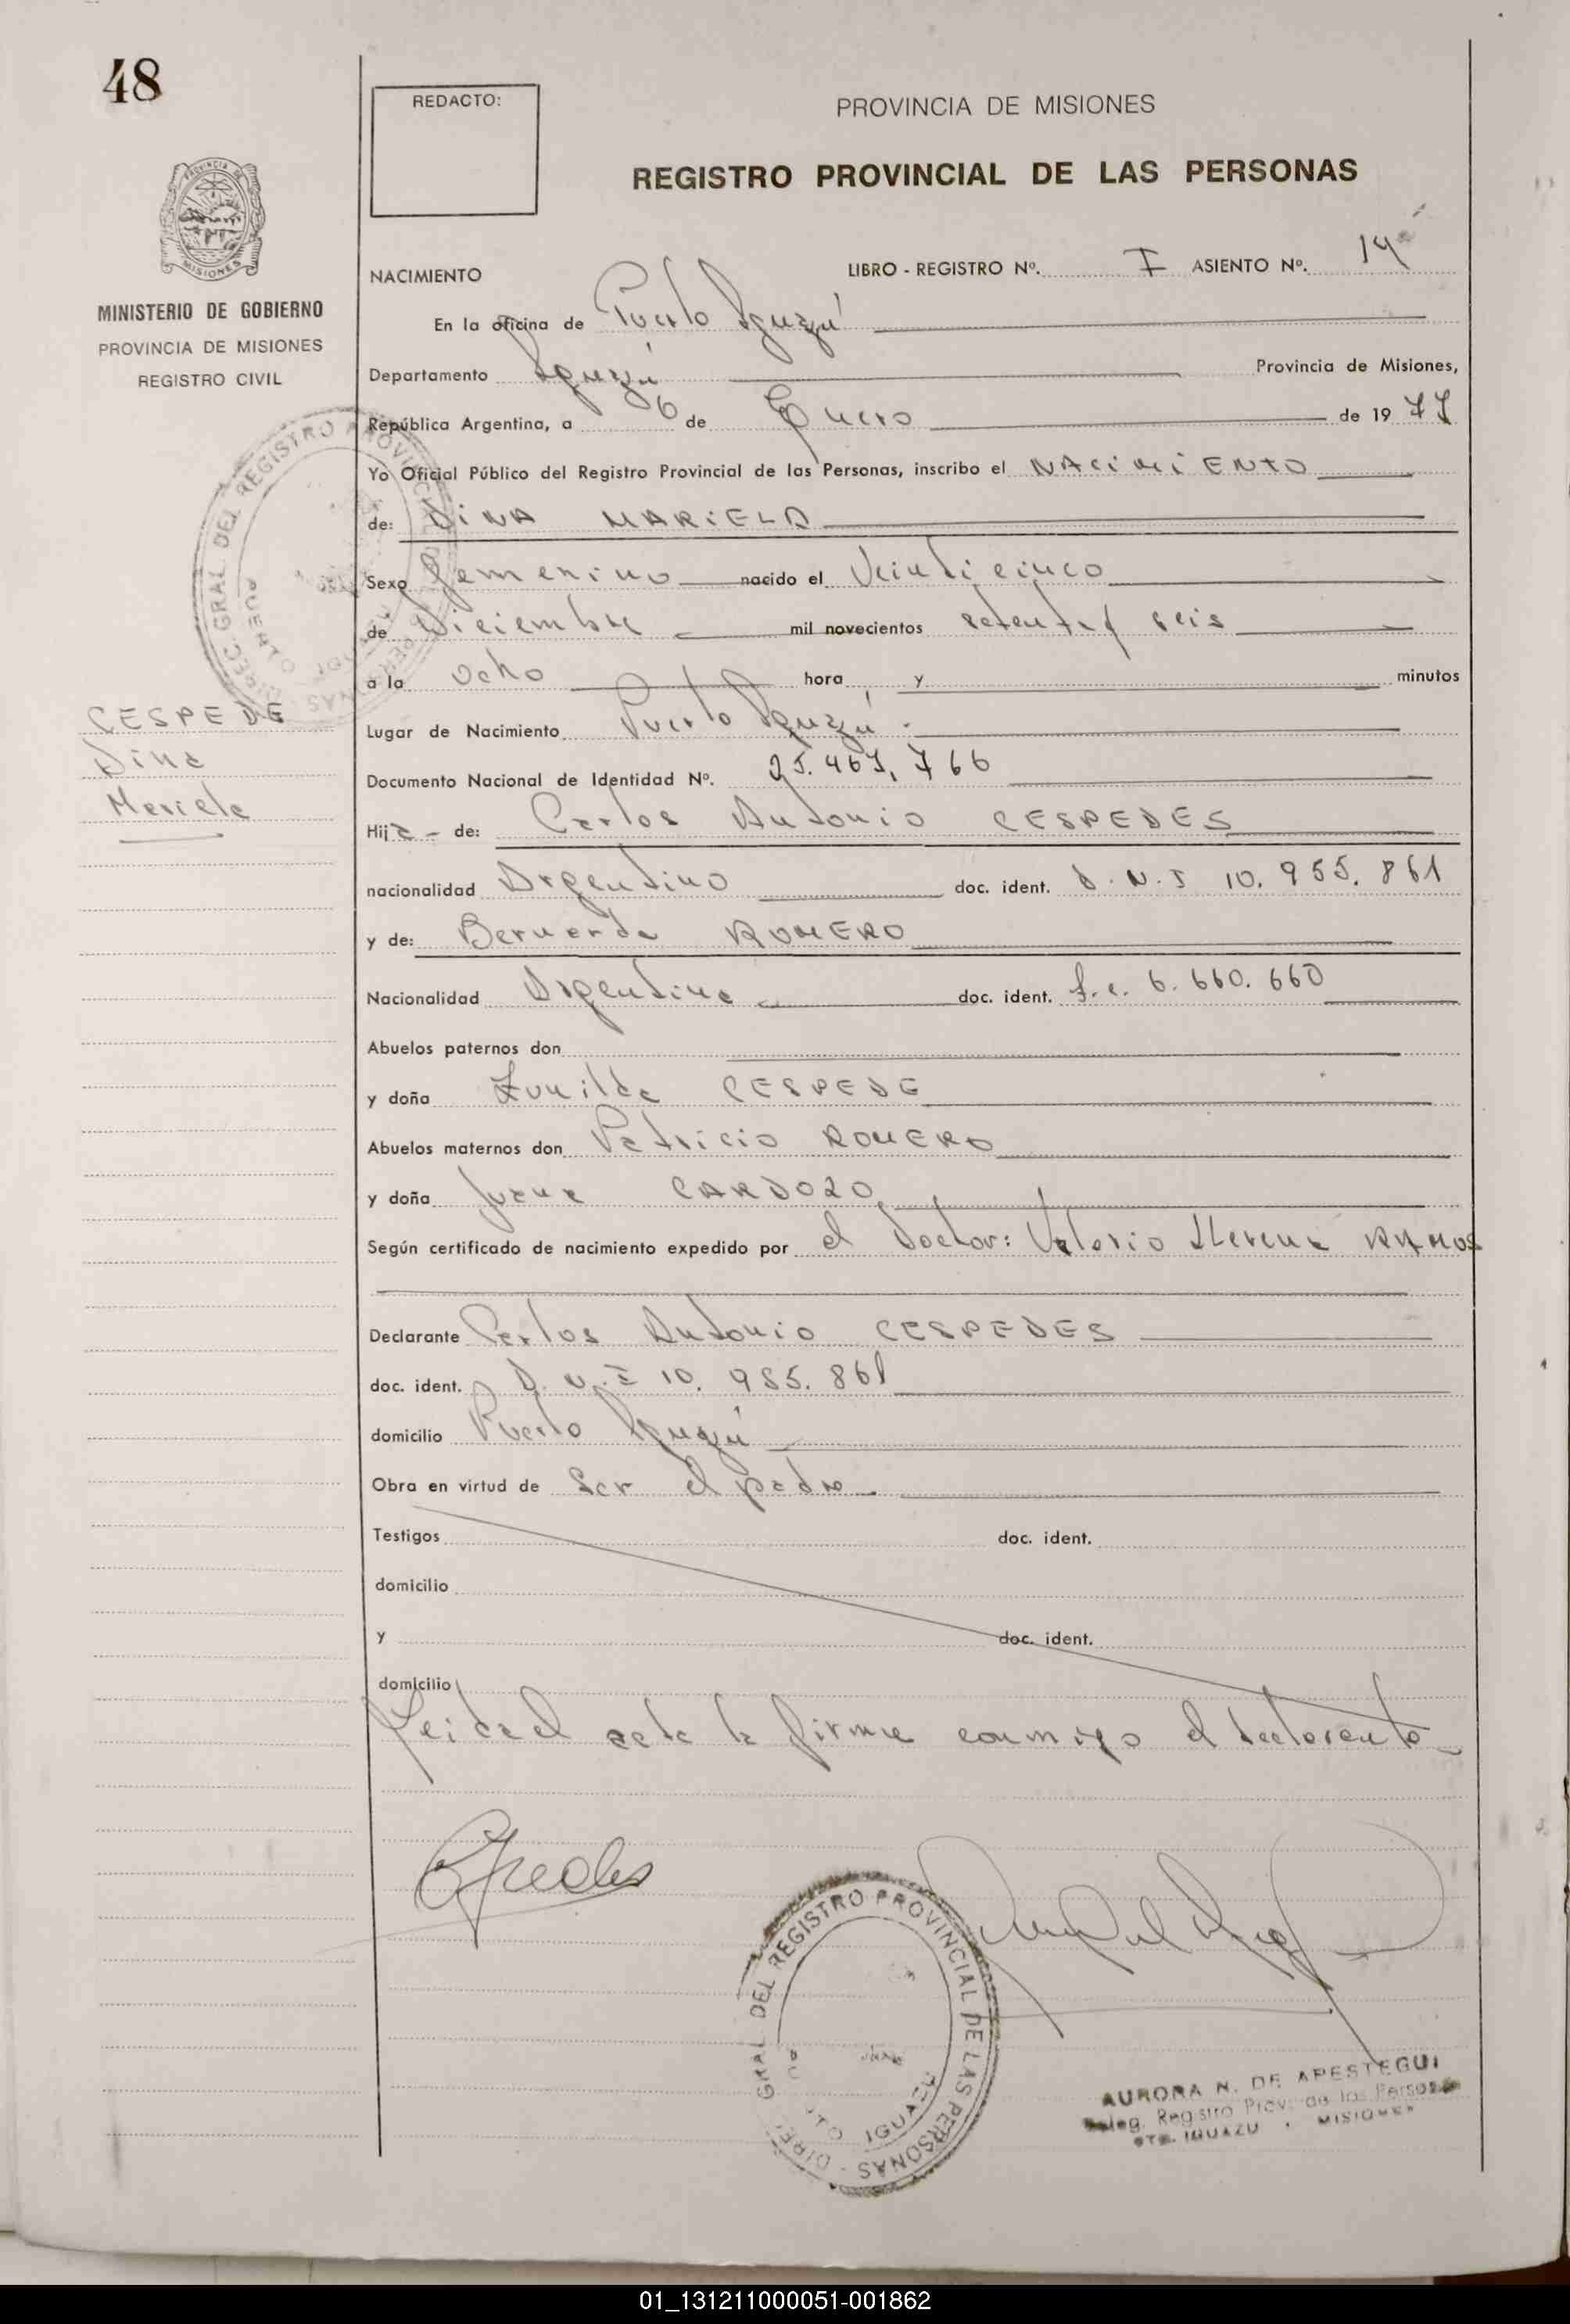 48
REDACTO:
PROVINCIA DE MISIONES
REGISTRO PROVINCIAL DE LAS PERSONAS
PROVINCIA DE
MISIONES
MINISTERIO DE GOBIERNO
PROVINCIA DE MISIONES
REGISTRO CIVIL
NACIMIENTO LIBRO - REGISTRO Nº. I ASIENTO Nº. 14
En la oficina de Puerto Iguazú
Departamento Iguazú Provincia de Misiones,
República Argentina, a 6 de Enero de 1977
Yo Oficial Público del Registro Provincial de las Personas, inscribo el NACIMIENTO
de: DINA MARIELA
Sexo femenino nacido el Veinticinco
de Diciembre mil novecientos setenta y seis
a la ocho hora y minutos
Lugar de Nacimiento Puerto Iguazú.
Documento Nacional de Identidad Nº. 25.467.766
Hija de: Carlos Antonio CESPEDES
nacionalidad Argentino doc. ident. D.N.I 10.955.861
y de: Bernarda ROMERO
Nacionalidad Argentina doc. ident. L.c. 6.660.660
Abuelos paternos don
y doña Zunilda CESPEDE
Abuelos maternos don Patricio ROMERO
y doña Juana CARDOZO
Según certificado de nacimiento expedido por el Doctor: Valerio Llerena RAMOS
Declarante Carlos Antonio CESPEDES
doc. ident. D.N.I 10.955.861
domicilio Puerto Iguazú
Obra en virtud de Ser el padre
Testigos doc. ident.
domicilio
y doc. ident.
domicilio
Leida el acta la firma conmigo el declarante
CESPEDE
Dina
Mariela
DIREC. GRAL DEL REGISTRO PROVINCIAL DE LAS PERSONAS
PUERTO
DIREC. GRAL DEL REGISTRO PROVINCIAL DE LAS PERSONAS -
IGUAZU
AURORA N. DE APESTEGUI
Deleg. Registro Prov. de las Personas
PTO. IGUAZU - MISIONES
01_131211000051-001862